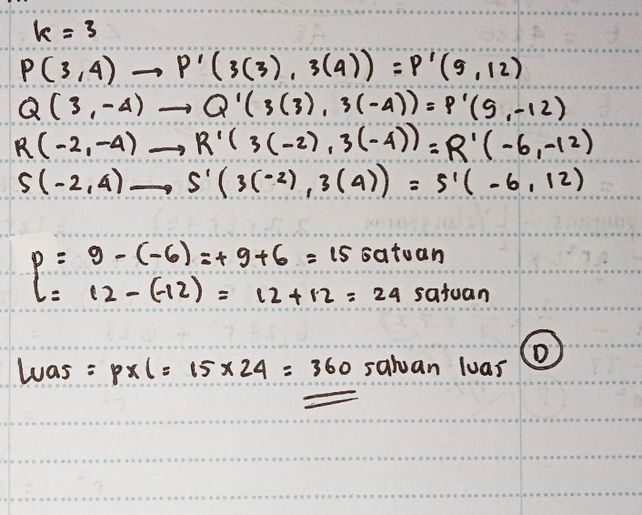 k = 3
P(3,4) → P'(3(3), 3(4)) = P'(9,12)
Q(3,-4) → Q'(3(3), 3(-4)) = P'(9,-12)
R(-2,-4) → R'(3(-2), 3(-4)) = R'(-6,-12)
S(-2,4) → S'(3(-2), 3(4)) = S'(-6, 12)
p = 9 - (-6) = + 9+6 = 15 satuan
l = 12 - (-12) = 12+12 = 24 satuan
luas = p x l = 15 x 24 = 360 satuan luas D